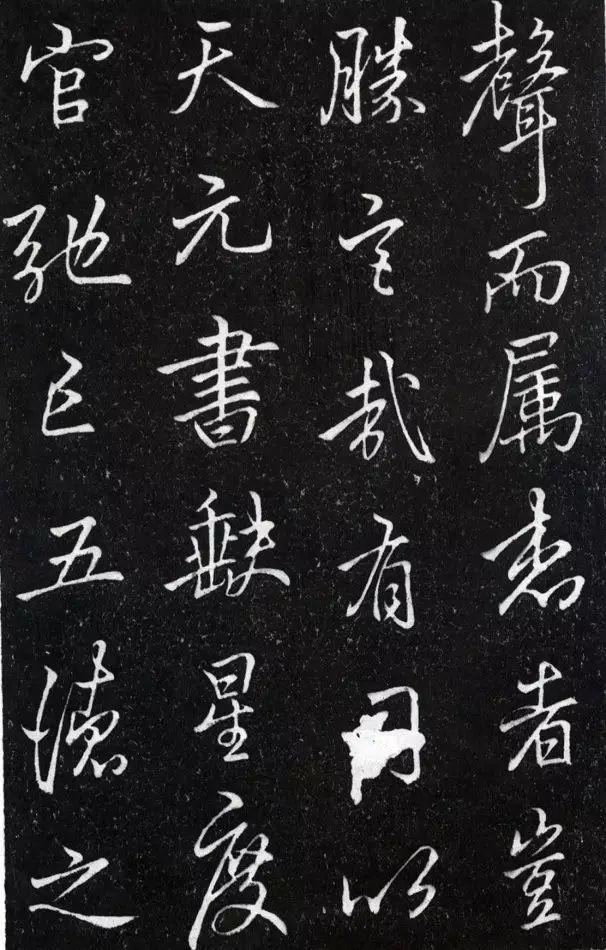 聲而属者豈
勝言哉有司以
天元書缺星度
官弛已五德之